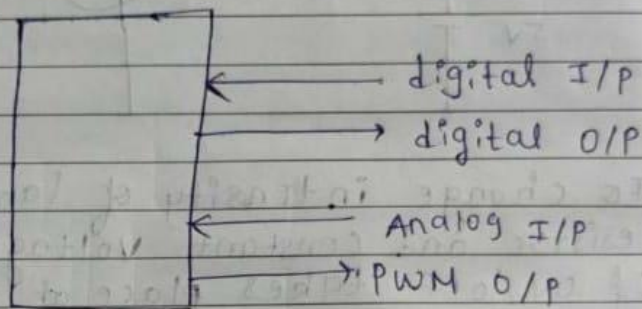 digital I/P
digital O/P
Analog I/P
PWM O/P